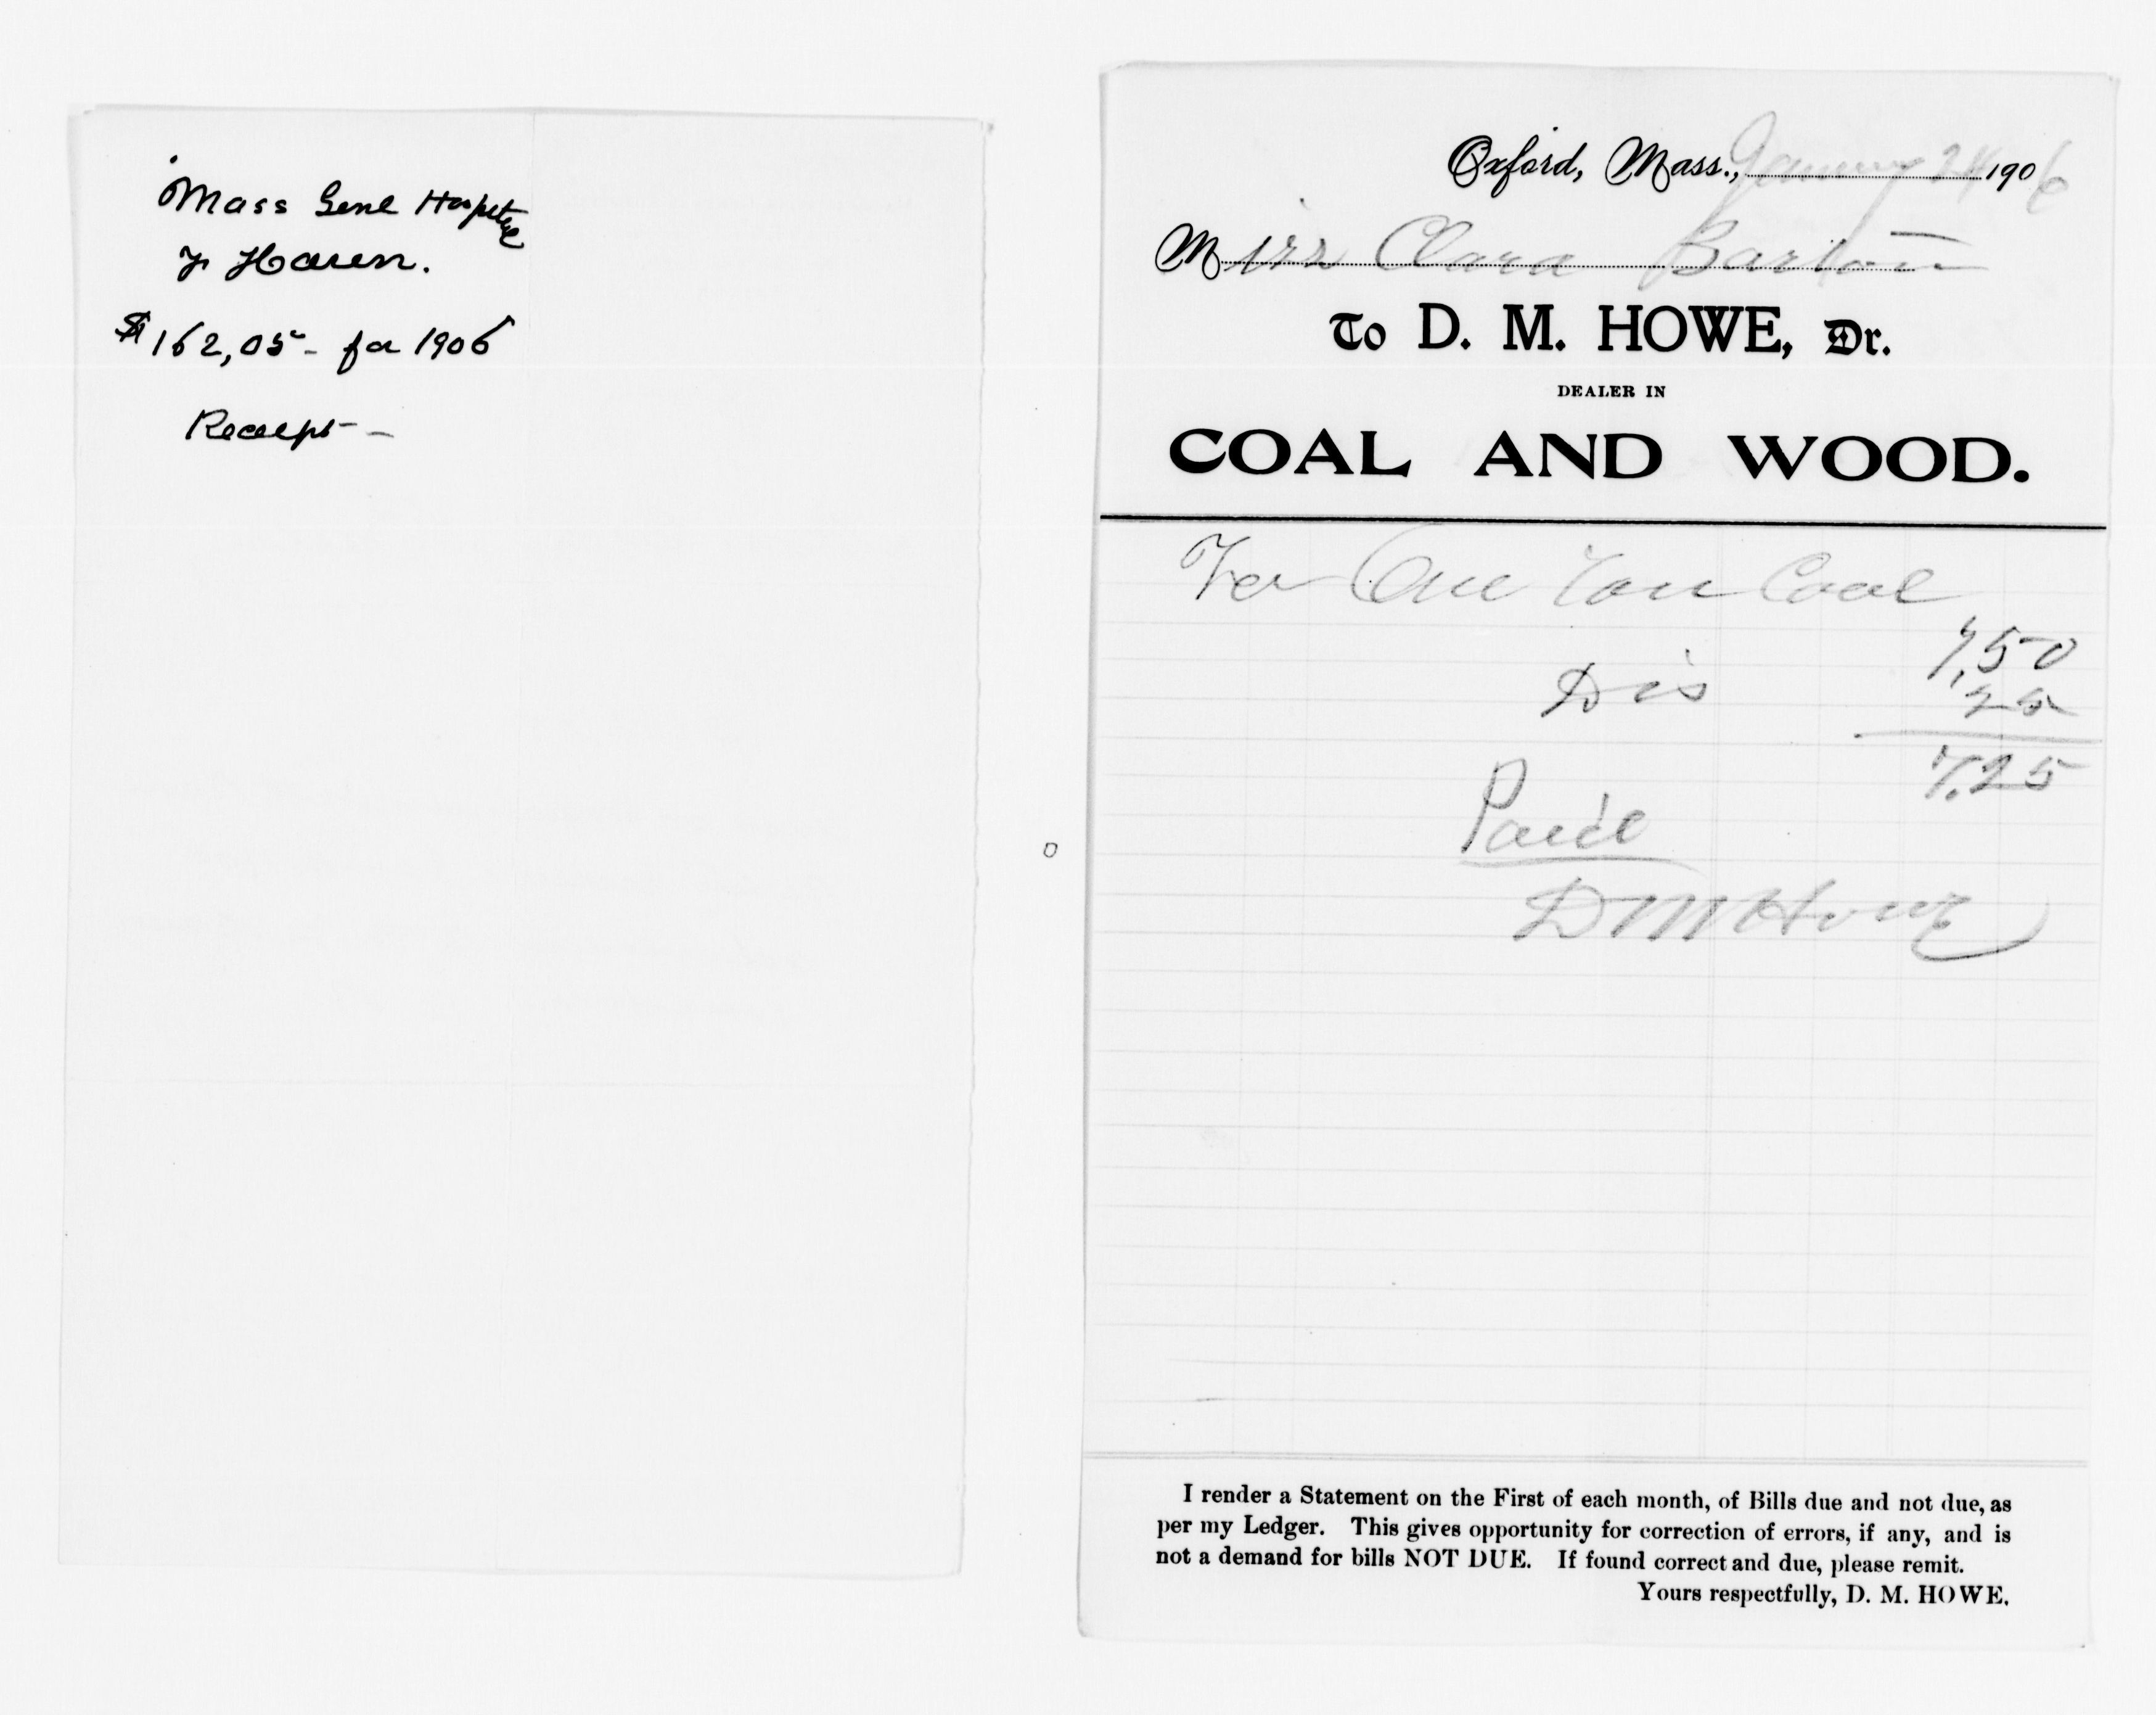 Mass Genl Hospital
$162,05 - for 1906
Receipt -
Oxford, Mass., January 24 1906
Miss Clara Barton
To D. M. HOWE, Dr.
DEALER IN
COAL AND WOOD.
For One Ton Coal
7,50
Dis 25
7.25
Paid
D M Howe
I render a Statement on the First of each month, of Bills due and not due, as
per my Ledger. This gives opportunity for correction of errors, if any, and is
not a demand for bills NOT DUE. If found correct and due, please remit.
Yours respectfully, D. M. HOWE.